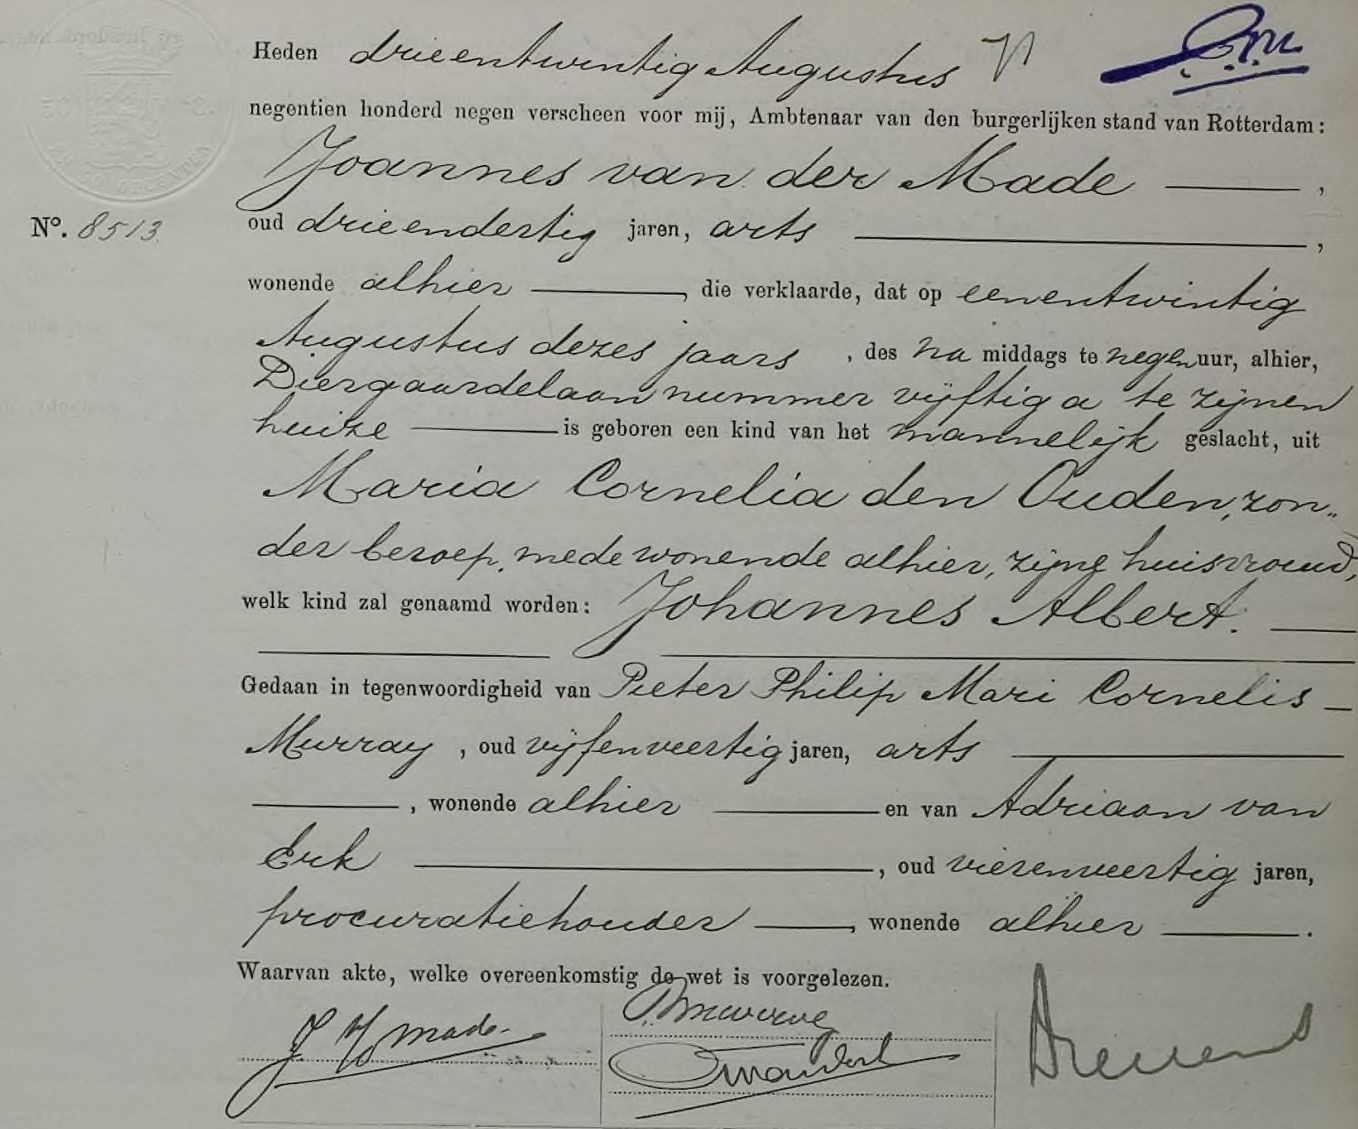 Heden drieentwintig Augustus
negentien honderd negen verscheen voor mij, Ambtenaar van den burgerlijken stand van Rotterdam:
Joannes van der Made ,
Nº. 8513 oud drieendertig jaren, arts ,
wonende alhier , die verklaarde, dat op eenentwintig
Augustus dezes jaars , des na middags te negen uur, alhier,
Diergaardelaan nummer vijftig a te zijnen
huize is geboren een kind van het mannelijk geslacht, uit
Maria Cornelia den Ouden, zon„
der beroep, mede wonende alhier, zijne huisvrouw,
welk kind zal genaamd worden: Johannes Albert.
Gedaan in tegenwoordigheid van Pieter Philip Mari Cornelis
Murray , oud vijfenveertig jaren, arts
, wonende alhier en van Adriaan van
Erk , oud vierenveertig jaren,
procuratiehouder , wonende alhier .
Waarvan akte, welke overeenkomstig de wet is voorgelezen.